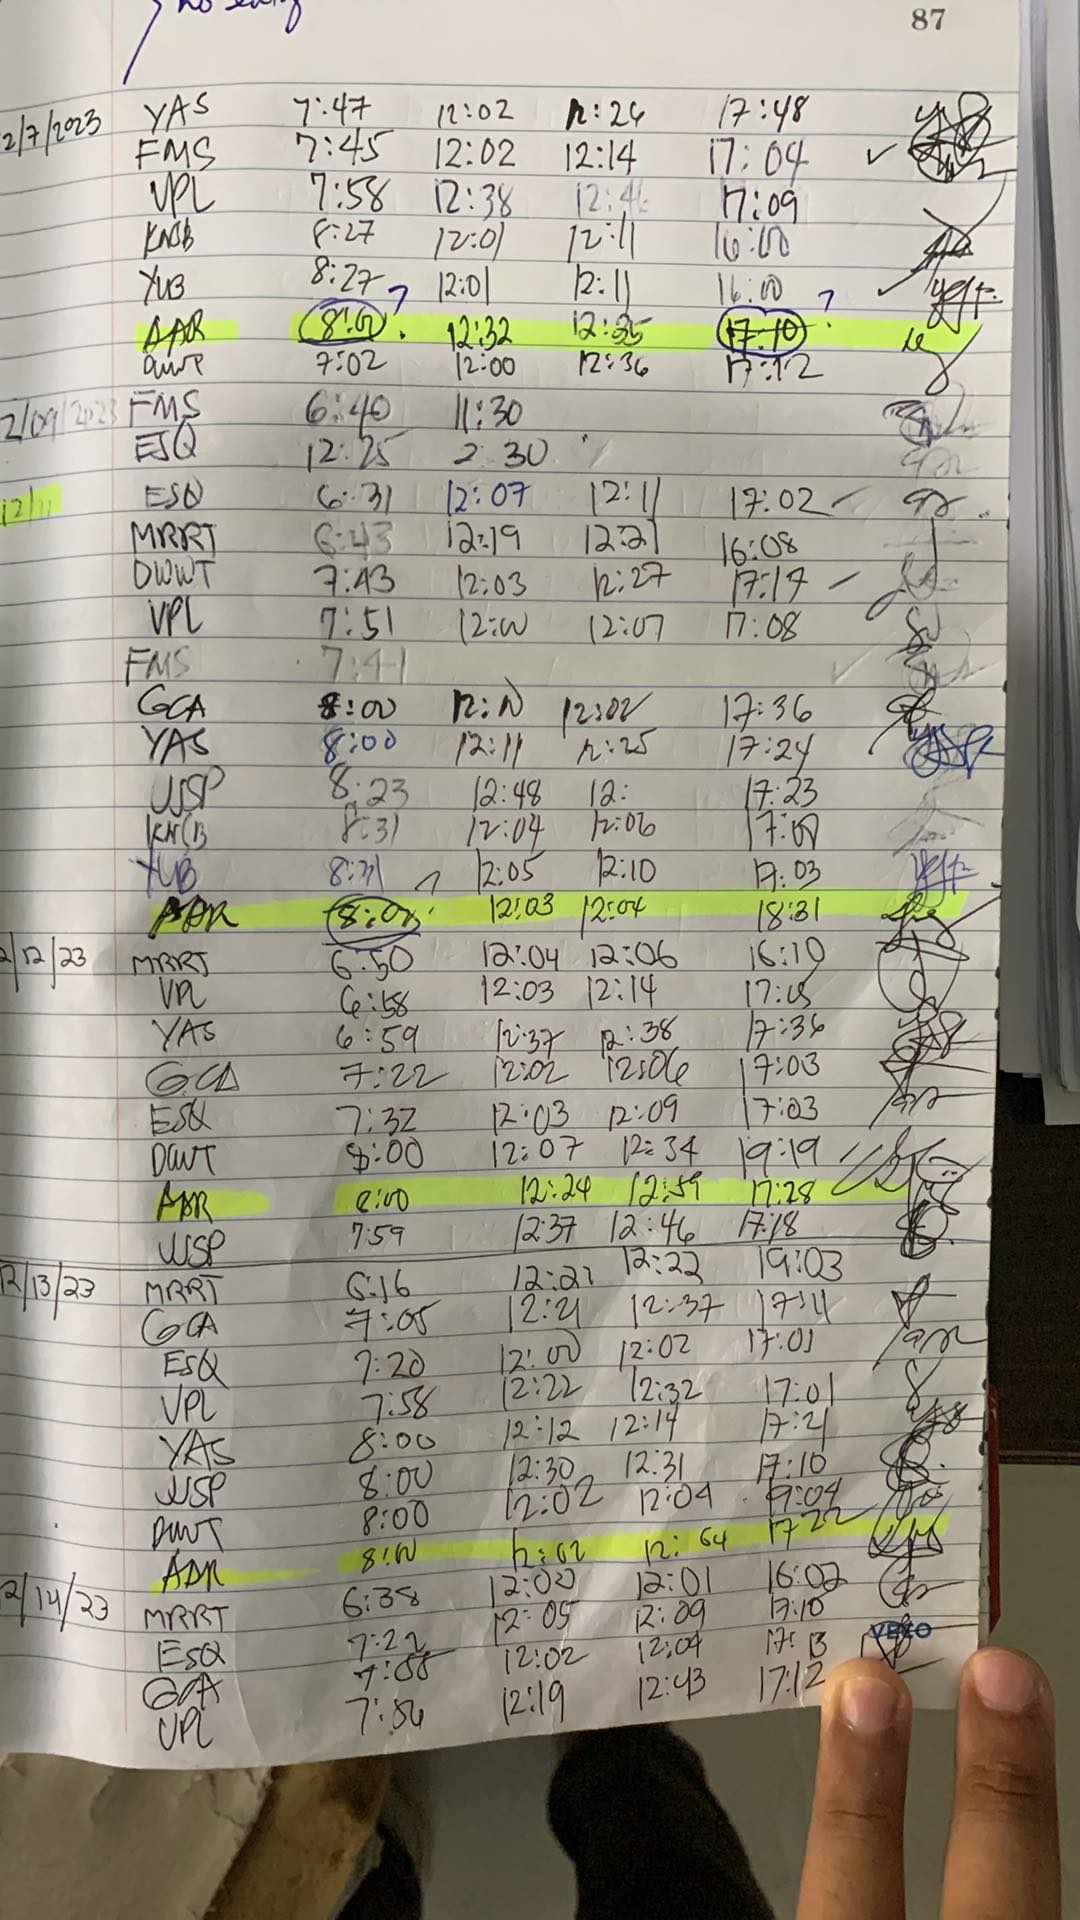 no
87
2/7/2023 YAS 7:47 12:02 12:26 17:48
FMS 7:45 12:02 12:14 17:04
VPL 7:58 12:38 17:09
8:27 12:01 12:11 16:00
YUB 8:27 ? 12:01 12:11 16:00 ?
AAR 12:32 12:35 17:10
DWT 7:02 12:00 12:36 17:12
2/09/2023 FMS 6:40 11:30
ESQ 12:25 2:30
12/11 ESQ 6:31 12:07 12:11 17:02
MRRT 6:43 12:19 12:21 16:08
DWWT 7:43 12:03 12:27 17:17
VPL 7:51 12:00 12:07 17:08
FMS 7:41
GCA 8:00 12:02 17:36
YAS 8:00 12:11 12:25 17:24
8:23 12:48 12: 17:23
8:31 12:04 12:06
YUB 8:31 ? 12:05 12:10 17:03
12:03 12:04 18:31
2/12/23 MRRT 6:50 12:04 12:06 16:10
VPL 6:58 12:03 12:14
YAS 6:59 12:37 12:38 17:36
GCA 7:22 12:02 12:06 17:03
ESQ 7:32 12:03 12:09 17:03
DWT 8:00 12:07 12:34 19:19
8:00 12:24 12:59 17:28
7:59 12:37 12:46 17:18
12/13/23 MRRT 6:16 12:21 12:22 19:03
GCA 7:05 12:21 12:37 17:11
ESQ 7:20 12:00 12:02 17:01
VPL 7:58 12:22 12:32 17:01
YAS 8:00 12:12 12:14 17:21
8:00 12:30 12:31 17:10
DWT 8:00 12:02 12:04 19:04
8:00 12:02 12:04 17:22
2/14/23 MRRT 6:38 12:00 12:01 16:02
ESQ 7:22 12:05 12:09 17:10
GCA 12:02 12:04 17:13
VPL 7:56 12:19 12:43 17:12
VECO